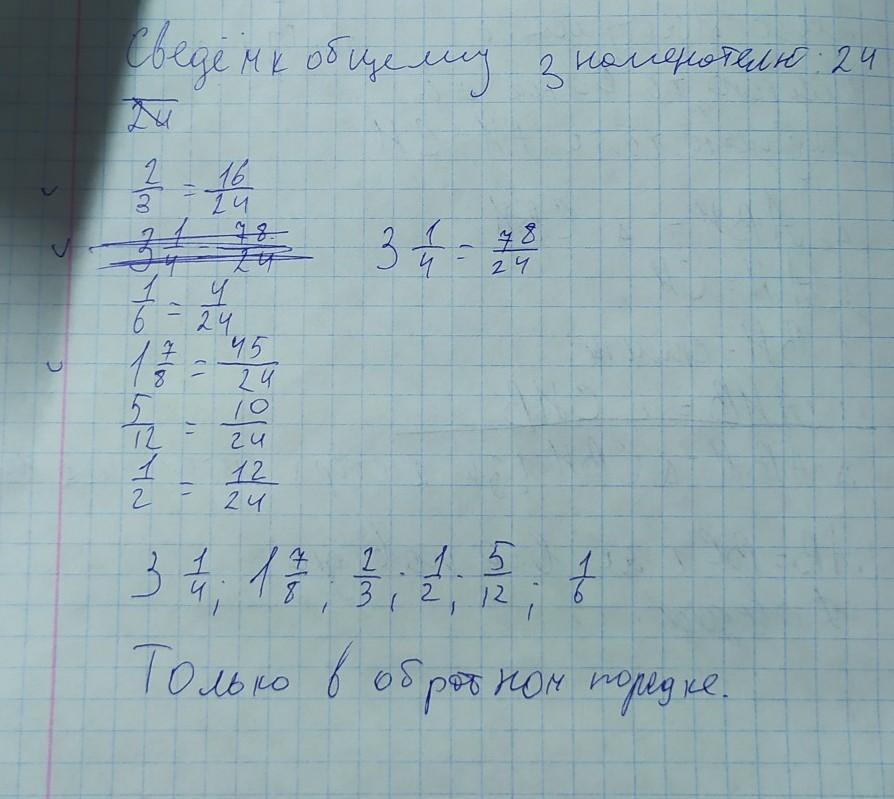 Сведём к общему знаменателю: 24
24
2/3 = 16/24
3 1/4 = 78/24 3 1/4 = 78/24
1/6 = 4/24
1 7/8 = 45/24
5/12 = 10/24
1/2 = 12/24
3 1/4; 1 7/8; 2/3; 1/2; 5/12; 1/6
Только в обратном порядке.